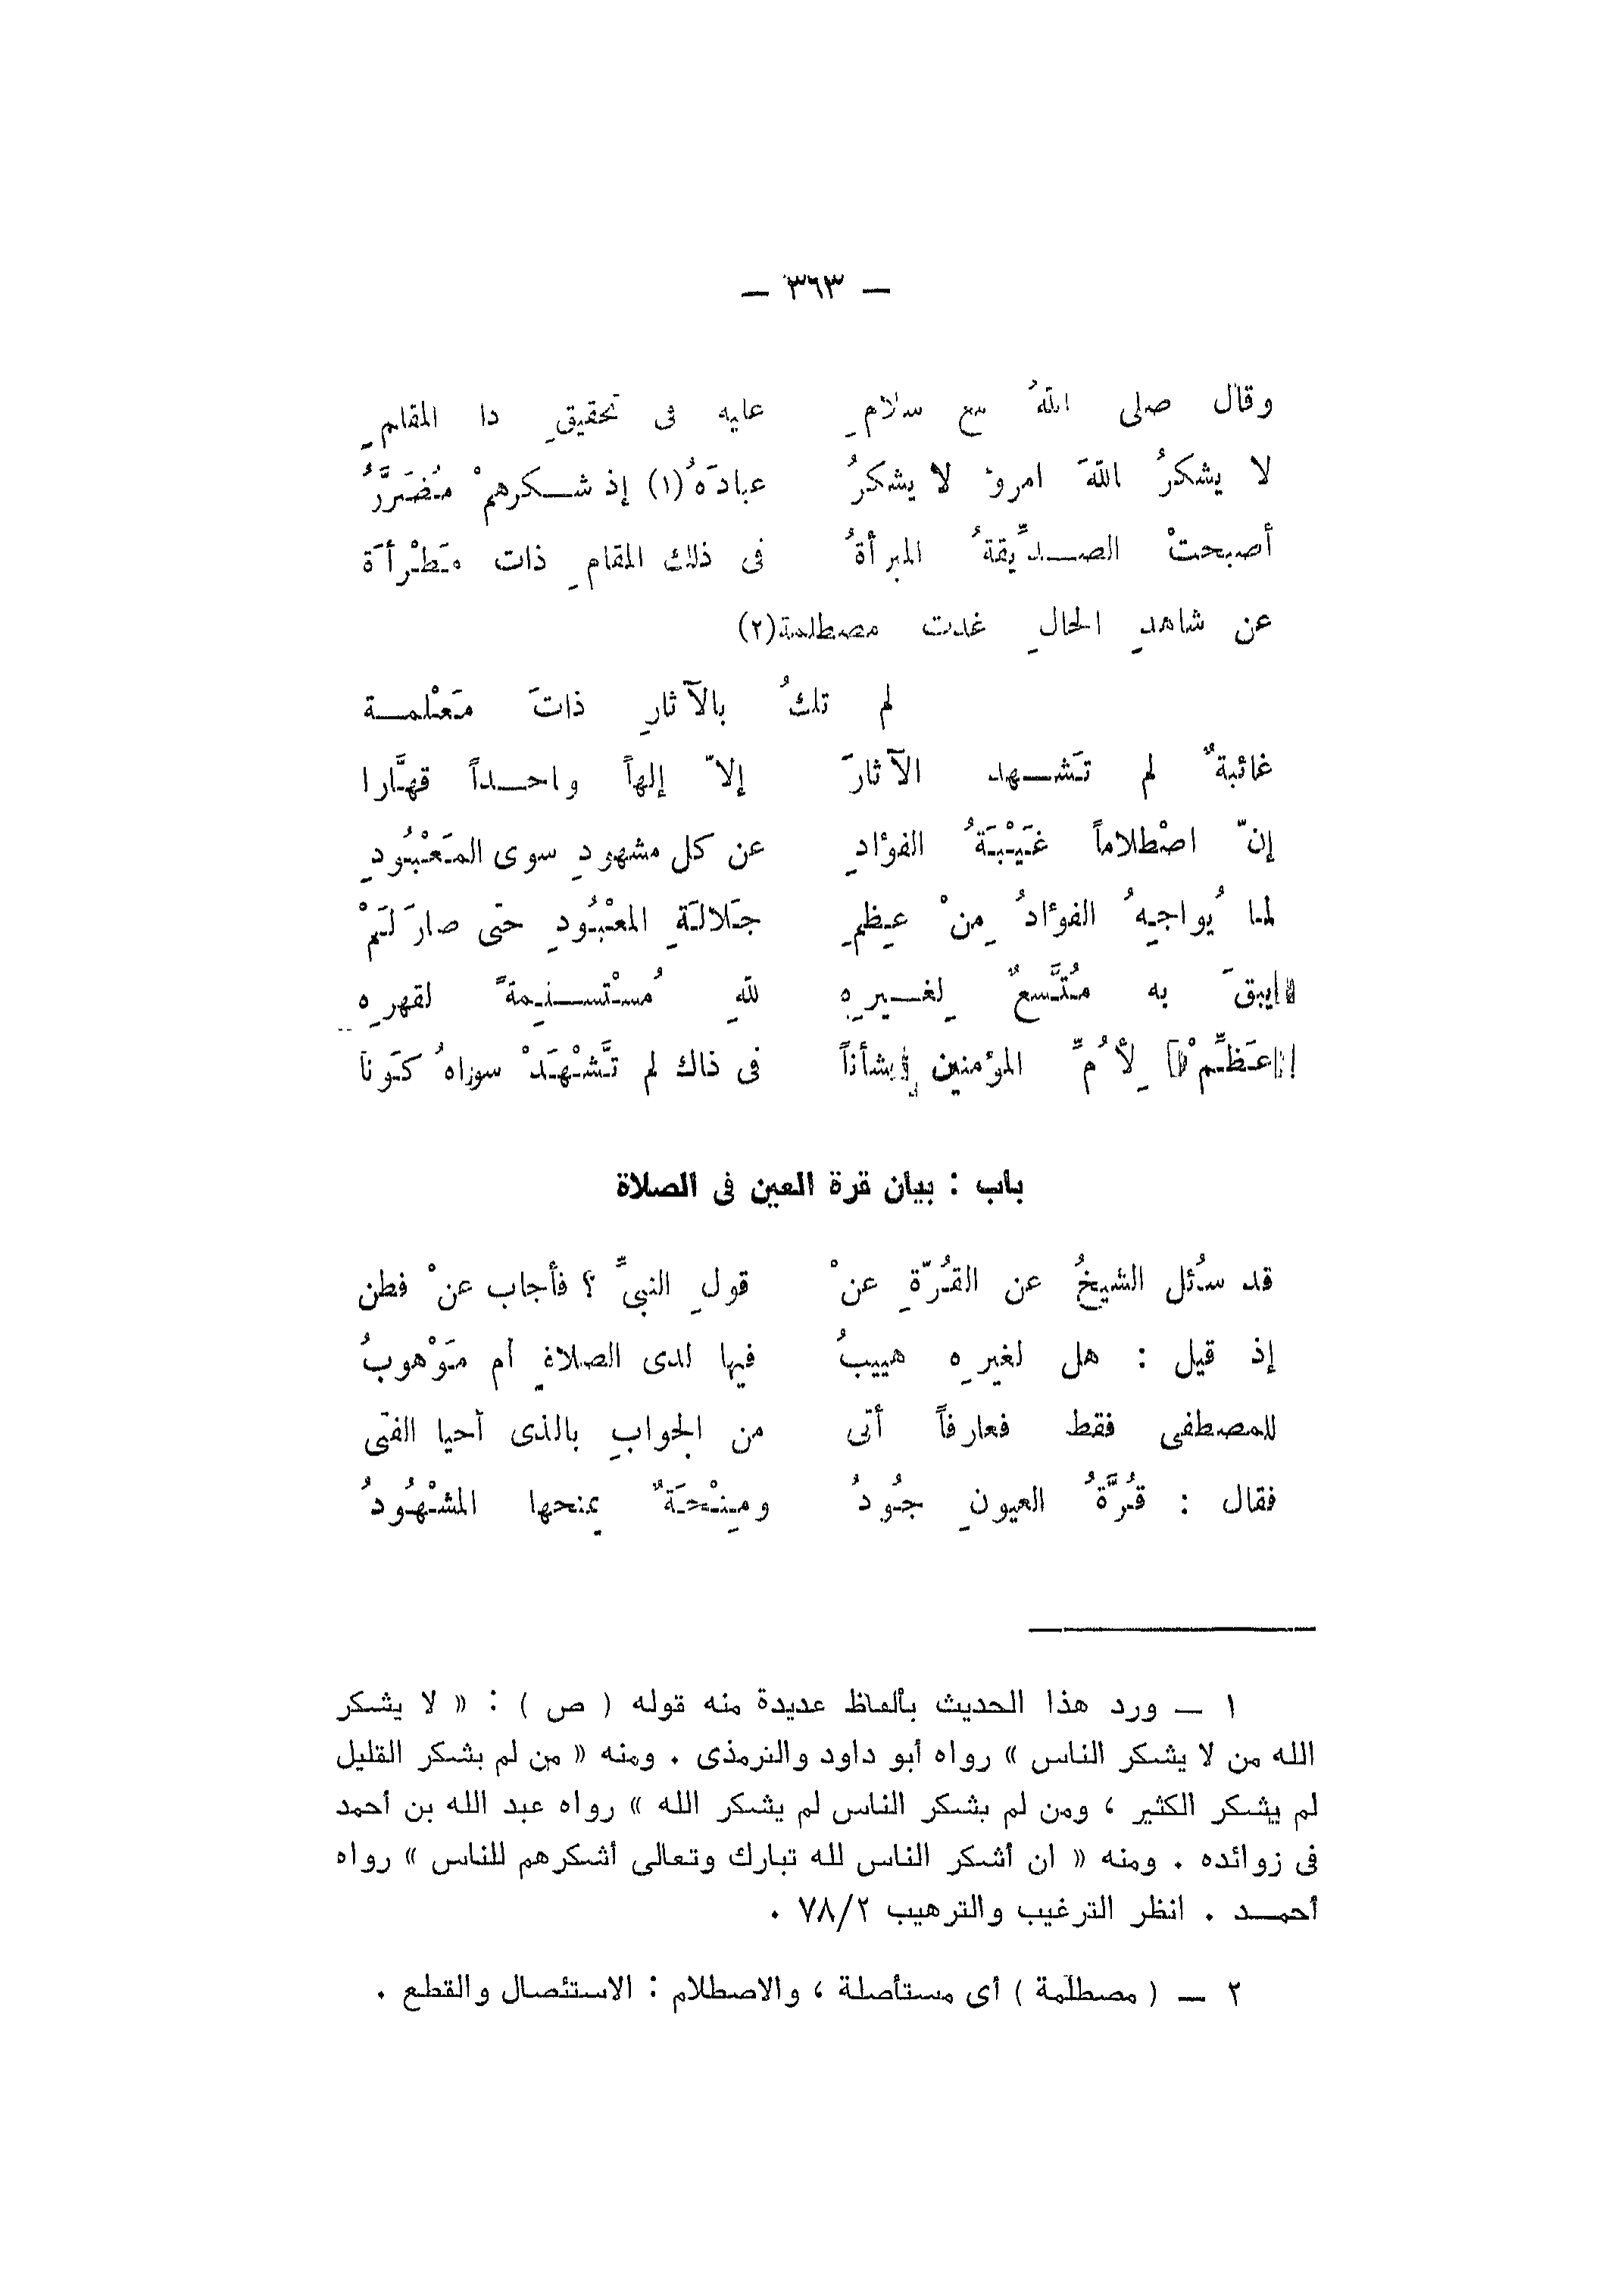 — ٣٦٣ —
وقال صلى اللهُ مع سلامِ عليه فى تحقيقِ ذا المقامِ
لا يشكرُ اللّهَ امرؤٌ لا يشكرُ عبادَهُ(١) إذ شكرهمْ مُضَرَّرُ
أصبحتْ الصدِّيقةُ المبرأةُ فى ذلك المقامِ ذات مَطْرأَة
عن شاهدِ الحالِ غدت مصطلمة(٢)
لم تكُ بالآثارِ ذاتَ مَعْلمة
غائبةٌ لم تَشهد الآثارَ إلاّ إلهاً واحداً قهَّارا
إنّ اصْطلاماً غَيْبَةُ الفؤادِ عن كل مشهودِ سوى المَعْبُودِ
لما يُواجِهُ الفؤادُ مِنْ عِظمِ جَلالَةِ المعْبُودِ حتى صارَ لَمْ
يبقَ به مُتَّسعٌ لِغيرِهِ للّهِ مُسْتسنِمةً لقهرِه
عَظِّمْ لأُمِّ المؤمنين شأناً فى ذاك لم تَشْهَدْ سواهُ كَونَا
باب : بيان قرة العين فى الصلاة
قد سُئل الشيخُ عن القُرّةِ عنْ قولِ النبىِّ ؟ فأجاب عنْ فطن
إذ قيل : هل لغيرِه هييبُ فيها لدى الصلاةِ أم مَوْهوبُ
للمصطفى فقط فعارفاً أتى من الجوابِ بالذى أحيا الفتى
فقال : قُرَّةُ العيونِ جُودُ ومِنْحَةٌ يمنحها المشْهُودُ
١ — ورد هذا الحديث بألفاظ عديدة منه قوله ( ص ) : « لا يشكر
الله من لا يشكر الناس » رواه أبو داود والترمذى . ومنه « من لم يشكر القليل
لم يشكر الكثير ، ومن لم يشكر الناس لم يشكر الله » رواه عبد الله بن أحمد
فى زوائده . ومنه « ان أشكر الناس لله تبارك وتعالى أشكرهم للناس » رواه
أحمد . انظر الترغيب والترهيب ٧٨/٢ .
٢ — ( مصطلمة ) أى مستأصلة ، والاصطلام : الاستئصال والقطع .